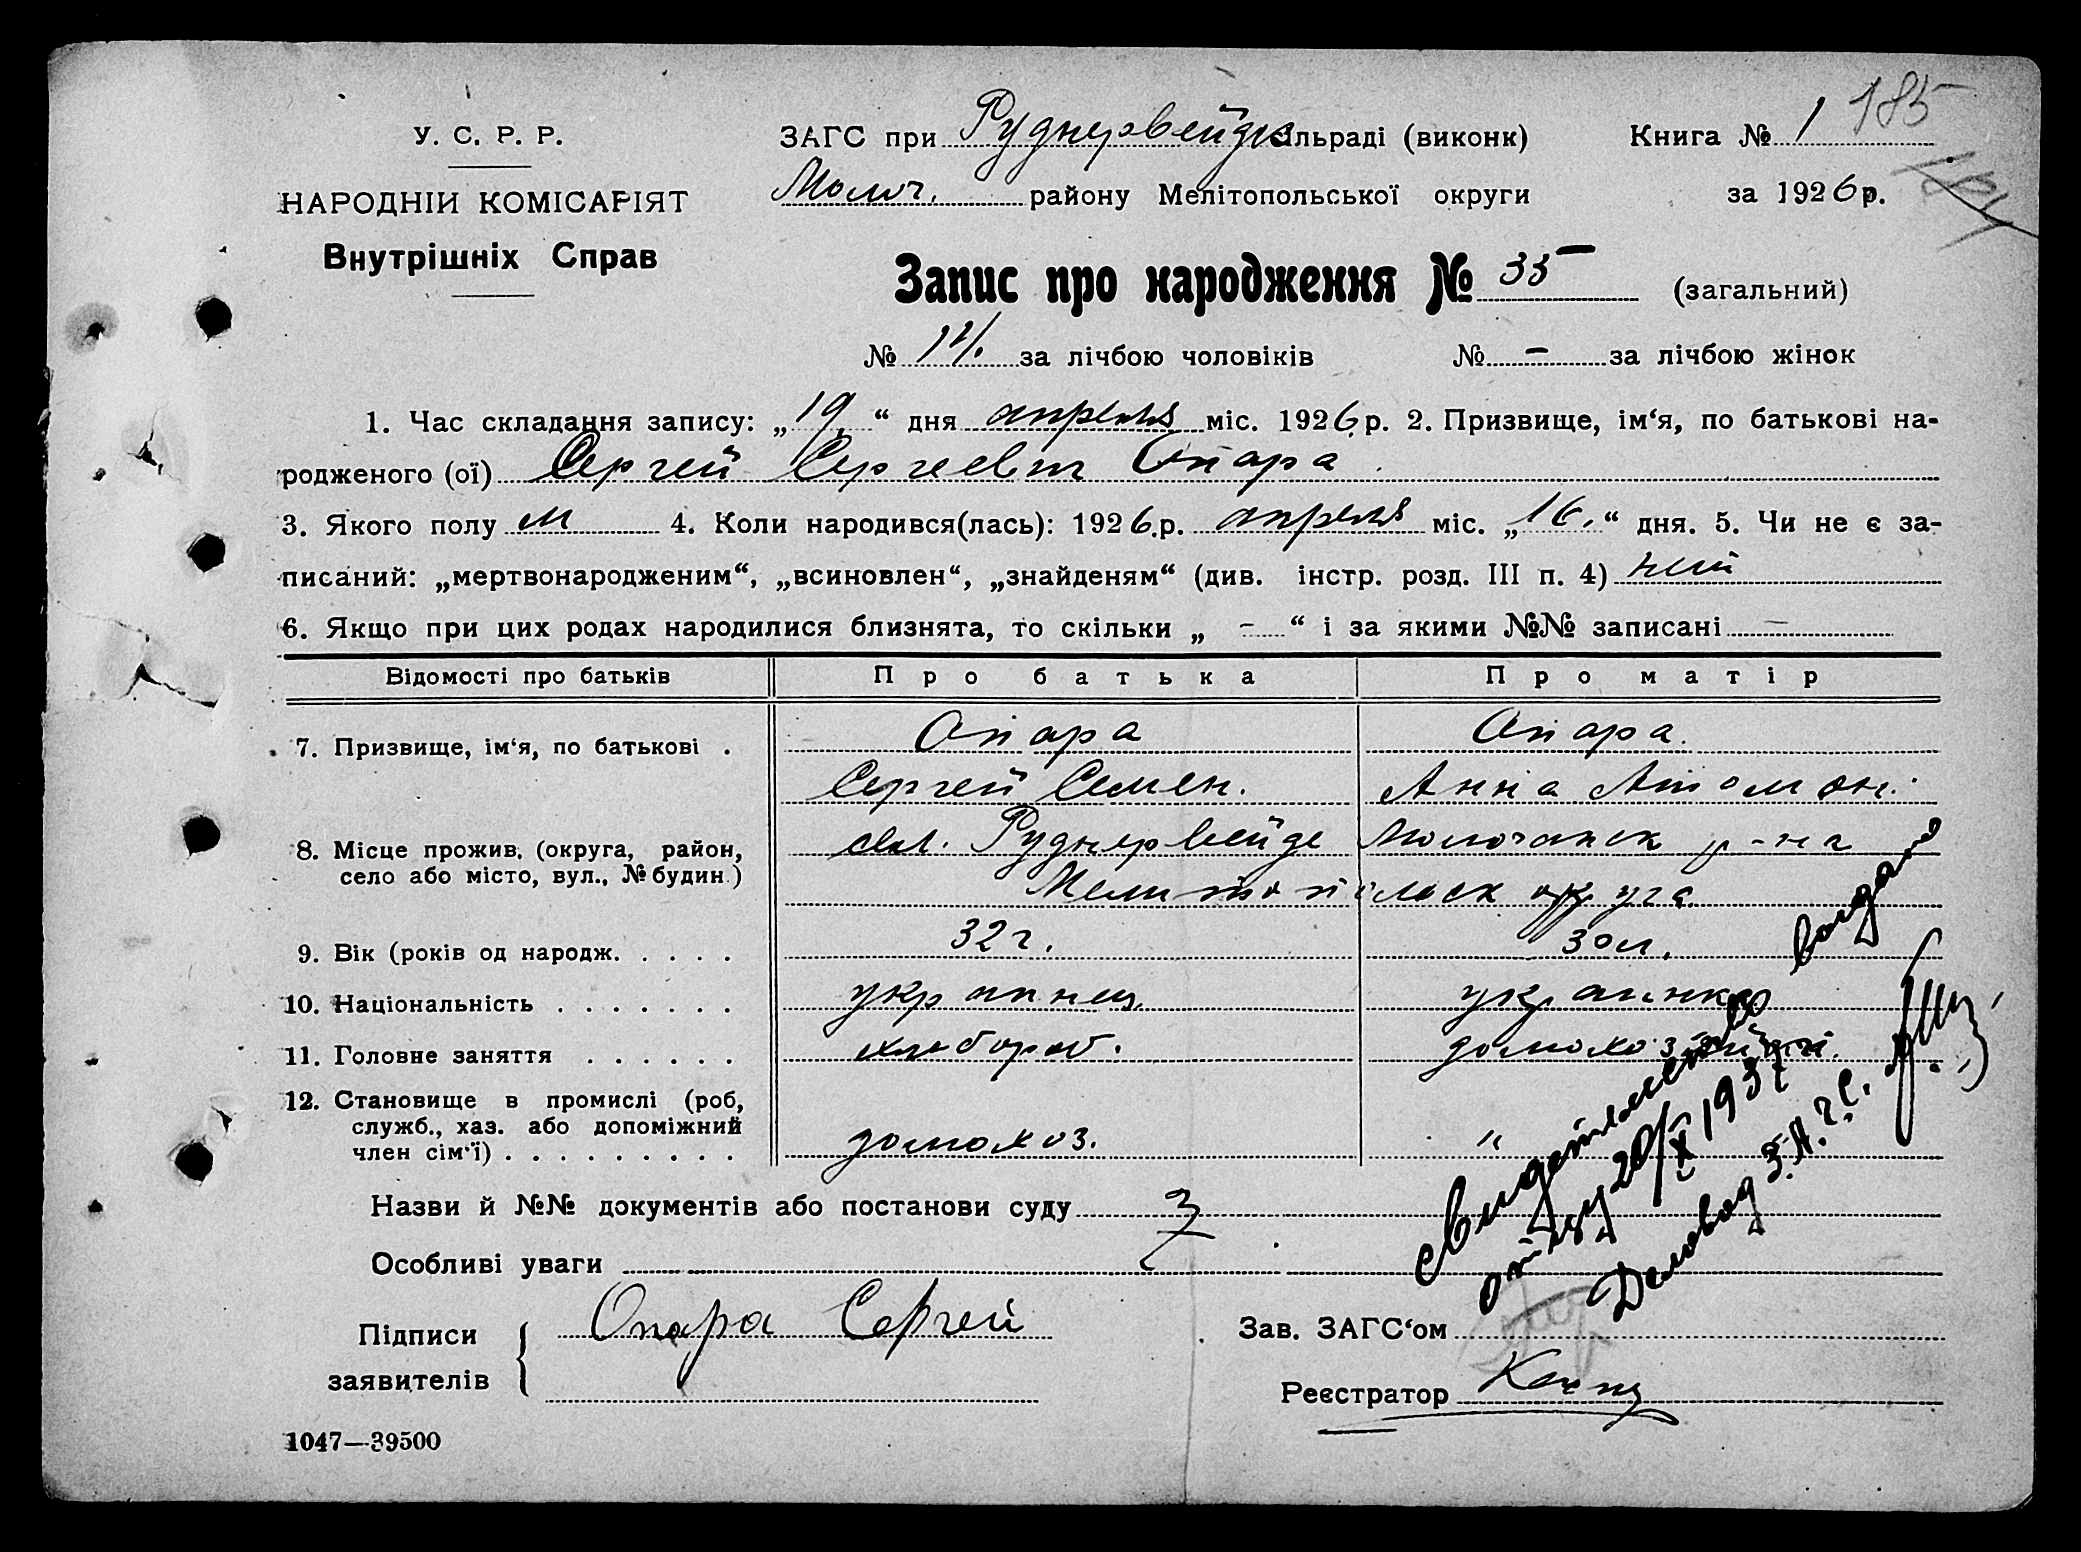 185
У. С. Р. Р.
НАРОДНІЙ КОМІСАРІЯТ
Внутрішніх Справ
ЗАГС при Руднервейде сільраді (виконк) Книга № 1
Молоч. району Мелітопольської округи за 1926 р.
Запис про народження № 35 (загальний)
№ 14. за лічбою чоловіків № - за лічбою жінок
1. Час складання запису: „19“ дня апреля міс. 1926 р. 2. Призвище, ім‘я, по батькові на-
родженого (ої) Сергей Сергеевич Опара
3. Якого полу м 4. Коли народився(лась): 1926 р. апреля міс. „16.“ дня. 5. Чи не є за-
писаний: „мертвонародженим“, „всиновлен“, „знайденям“ (див. інстр. розд. III п. 4) нет
6. Якщо при цих родах народилися близнята, то скільки „ - “ і за якими №№ записані -
Відомості про батьків Про батька Про матір
7. Призвище, ім‘я, по батькові . Опара Опара.
Сергей Семен. Анна
8. Місце прожив. (округа, район, сел. Руднервейде Молочанск р-на
село або місто, вул., № будин.) Мелитопольск округа
9. Вік (років од народж. . . . . 32 г. 30 л.
10. Національність . . . . . . . украинец украинка
11. Головне заняття . . . . . . хлебороб. домохозяйка.
12. Становище в промислі (роб,
служб., хаз. або допоміжний
член сім‘ї) . . . . . . . . . домохоз. "
Назви й №№ документів або постанови суду
Особливі уваги
Свидетельство выдано
отцу 20/X 1937
Деловод З.А.Г.С.
Підписи Опара Сергей Зав. ЗАГС‘ом
заявителів Реєстратор
1047—39500